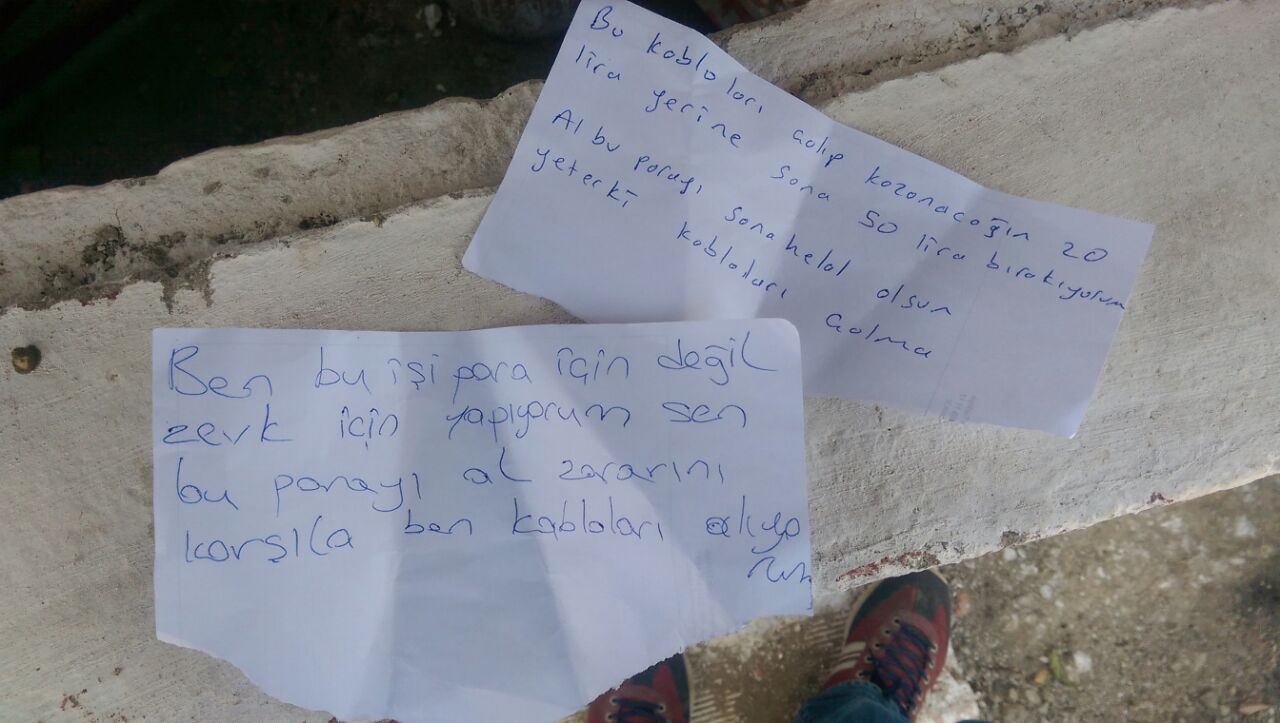 Bu kabloları çalıp kazanacağın 20
lira yerine sana 50 lira bırakıyorum
Al bu parayı sana helal olsun
yeterki kabloları çalma
Ben bu işi para için değil
zevk için yapıyorum sen
bu parayı al zararını
karşıla ben kabloları alıyo
rum